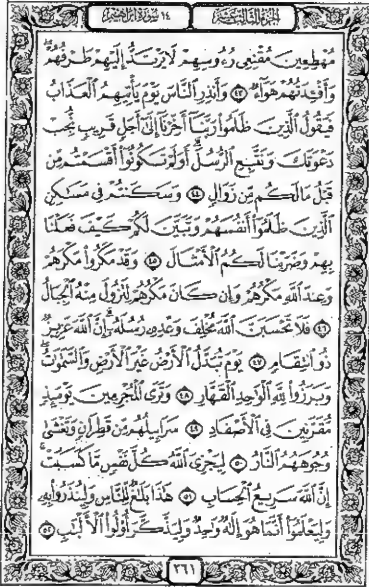 الجزء الثالث عشر ١٤ سورة ابراهيم
مُهْطِعِينَ مُقْنِعِي رُءُوسِهِمْ لَا يَرْتَدُّ إِلَيْهِمْ طَرْفُهُمْ
وَأَفْـِٔدَتُهُمْ هَوَآءٌ ٤٣ وَأَنذِرِ النَّاسَ يَوْمَ يَأْتِيهِمُ الْعَذَابُ
فَيَقُولُ الَّذِينَ ظَلَمُوا۟ رَبَّنَآ أَخِّرْنَآ إِلَىٰٓ أَجَلٍ قَرِيبٍ نُّجِبْ
دَعْوَتَكَ وَنَتَّبِعِ الرُّسُلَ أَوَلَمْ تَكُونُوٓا۟ أَقْسَمْتُم مِّن
قَبْلُ مَا لَكُم مِّن زَوَالٍ ٤٤ وَسَكَنتُمْ فِي مَسَـٰكِنِ
الَّذِينَ ظَلَمُوٓا۟ أَنفُسَهُمْ وَتَبَيَّنَ لَكُمْ كَيْفَ فَعَلْنَا
بِهِمْ وَضَرَبْنَا لَكُمُ الْأَمْثَالَ ٤٥ وَقَدْ مَكَرُوا۟ مَكْرَهُمْ
وَعِندَ اللَّهِ مَكْرُهُمْ وَإِن كَانَ مَكْرُهُمْ لِتَزُولَ مِنْهُ الْجِبَالُ
٤٦ فَلَا تَحْسَبَنَّ اللَّهَ مُخْلِفَ وَعْدِهِ رُسُلَهُ إِنَّ اللَّهَ عَزِيزٌ
ذُو انتِقَامٍ ٤٧ يَوْمَ تُبَدَّلُ الْأَرْضُ غَيْرَ الْأَرْضِ وَالسَّمَـٰوَٰتُ
وَبَرَزُوا۟ لِلَّهِ الْوَٰحِدِ الْقَهَّارِ ٤٨ وَتَرَى الْمُجْرِمِينَ يَوْمَئِذٍ
مُّقَرَّنِينَ فِي الْأَصْفَادِ ٤٩ سَرَابِيلُهُم مِّن قَطِرَانٍ وَتَغْشَىٰ
وُجُوهَهُمُ النَّارُ ٥٠ لِيَجْزِيَ اللَّهُ كُلَّ نَفْسٍ مَّا كَسَبَتْ
إِنَّ اللَّهَ سَرِيعُ الْحِسَابِ ٥١ هَـٰذَا بَلَـٰغٌ لِّلنَّاسِ وَلِيُنذَرُوا۟ بِهِ
وَلِيَعْلَمُوٓا۟ أَنَّمَا هُوَ إِلَـٰهٌ وَٰحِدٌ وَلِيَذَّكَّرَ أُو۟لُوا۟ الْأَلْبَـٰبِ ٥٢
٢٦١